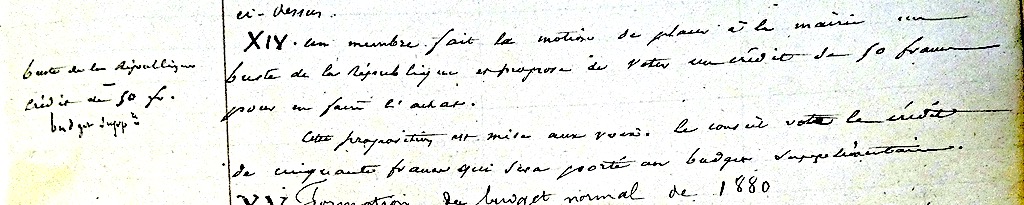 ci-dessus.
XIV. un membre fait la motion de placer à la mairie un
buste de la République et propose de voter un crédit de 50 francs
pour en faire l'achat.
Cette proposition est mise aux voix. Le conseil vote le crédit
de cinquante francs qui sera porté au budget supplémentaire.
XV Formation du budget normal de 1880
buste de la République
crédit de 50 fr.
budget supp.re